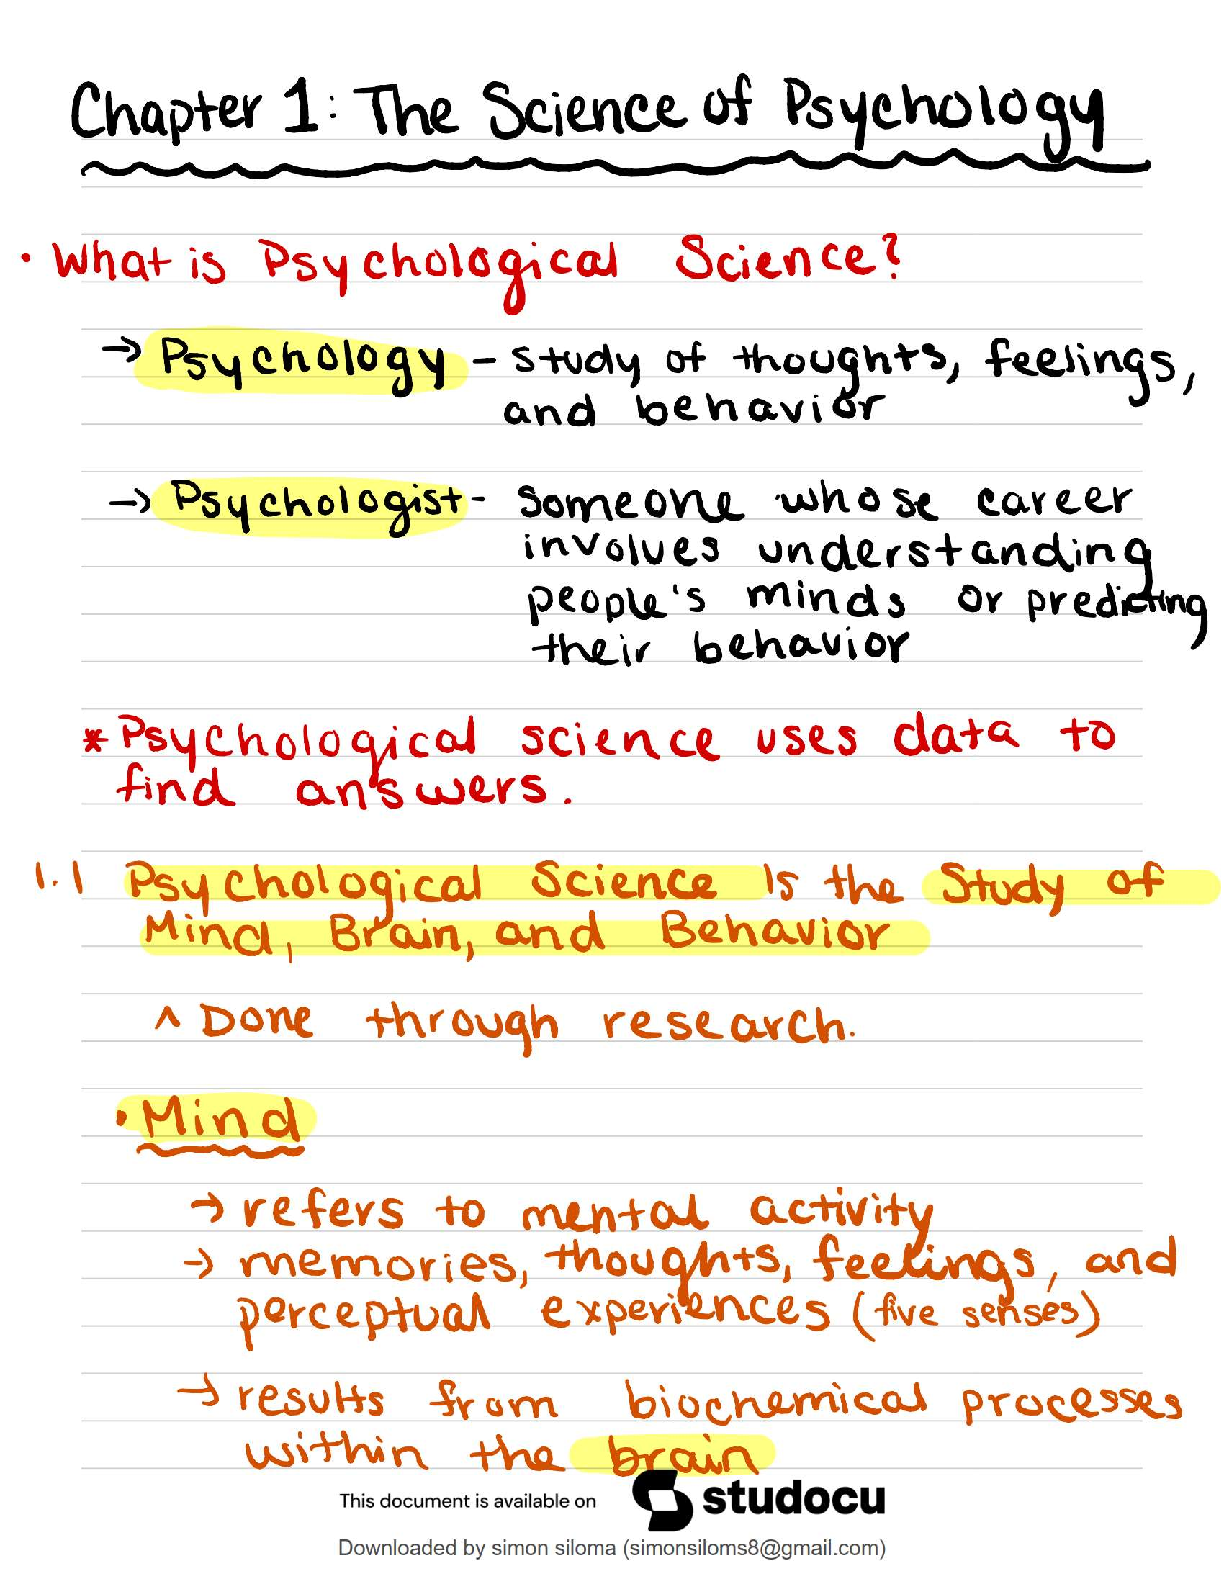 Chapter 1: The Science of Psychology
• What is Psychological Science?
→ Psychology - study of thoughts, feelings,
and behavior
→ Psychologist - someone whose career
involves understanding
people's minds or predicting
their behavior
* Psychological science uses data to
find answers.
1.1 Psychological Science Is the Study of
Mind, Brain, and Behavior
^ Done through research.
• Mind
→ refers to mental activity
→ memories, thoughts, feelings, and
perceptual experiences (five senses)
→ results from biochemical processes
within the brain
This document is available on studocu
Downloaded by simon siloma (simonsiloms8@gmail.com)